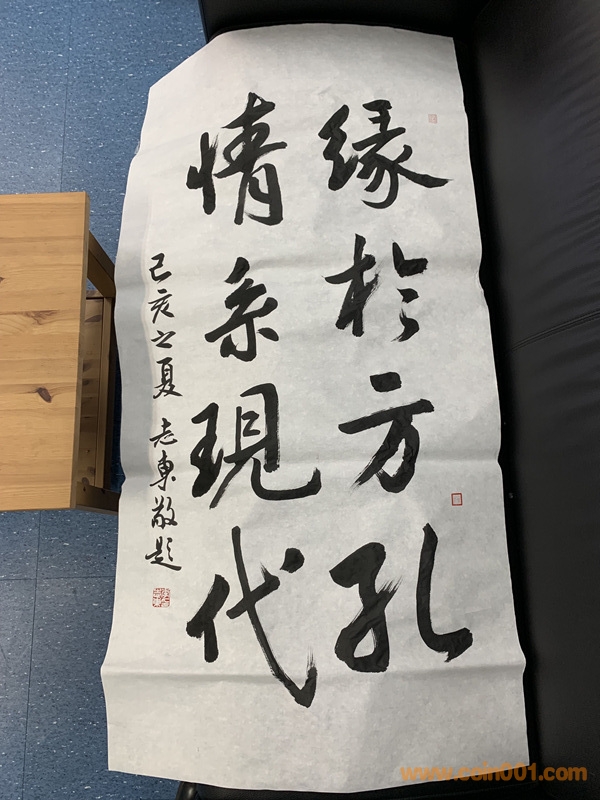 緣於方孔
情系現代
己亥之夏 志東敬題
www.coin001.com